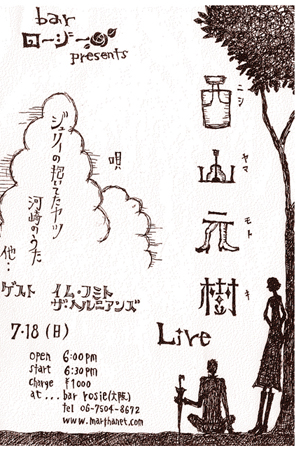 bar
ロージー
presents
西山元樹
ニシ ヤマ モト キ
唄
ジュリイの抱いてたヤツ
河崎のうた
他…
ゲスト イム・フミト
ザ・ヘルニアンズ
7・18(日)
Live
open 6:00pm
start 6:30pm
charge ¥1000
at... bar rosie(大阪)
tel 06-7504-8672
www.marthanet.com